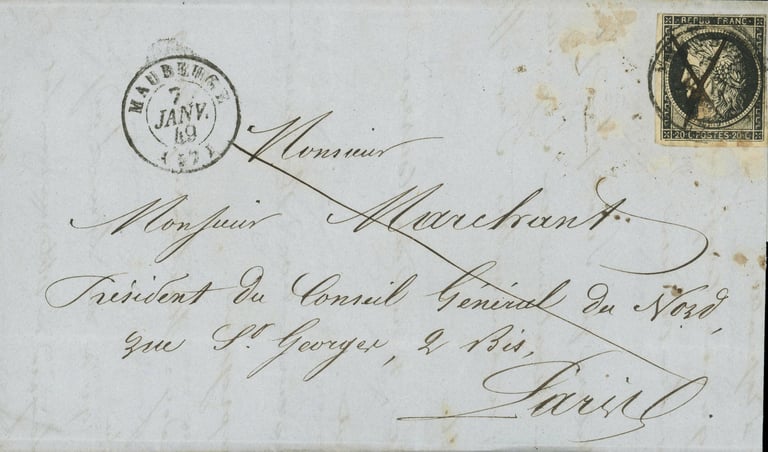 REPUB. FRANC.
20 C. POSTES 20 C.
MAUBEUGE
7
JANV.
49
(57)
Monsieur
Monsieur Marchant
Président du Conseil Général du Nord,
rue St Georges, 2 Bis,
Paris